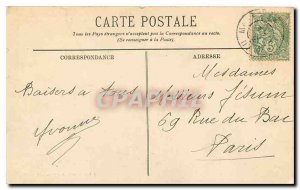 CARTE POSTALE
Tous les Pays étrangers n'acceptent pas la Correspondance au recto.
(Se renseigner à la Poste.)
CORRESPONDANCE
ADRESSE
Baisers à tous
Yvonne
Mesdames
69 Rue du Bac
Paris